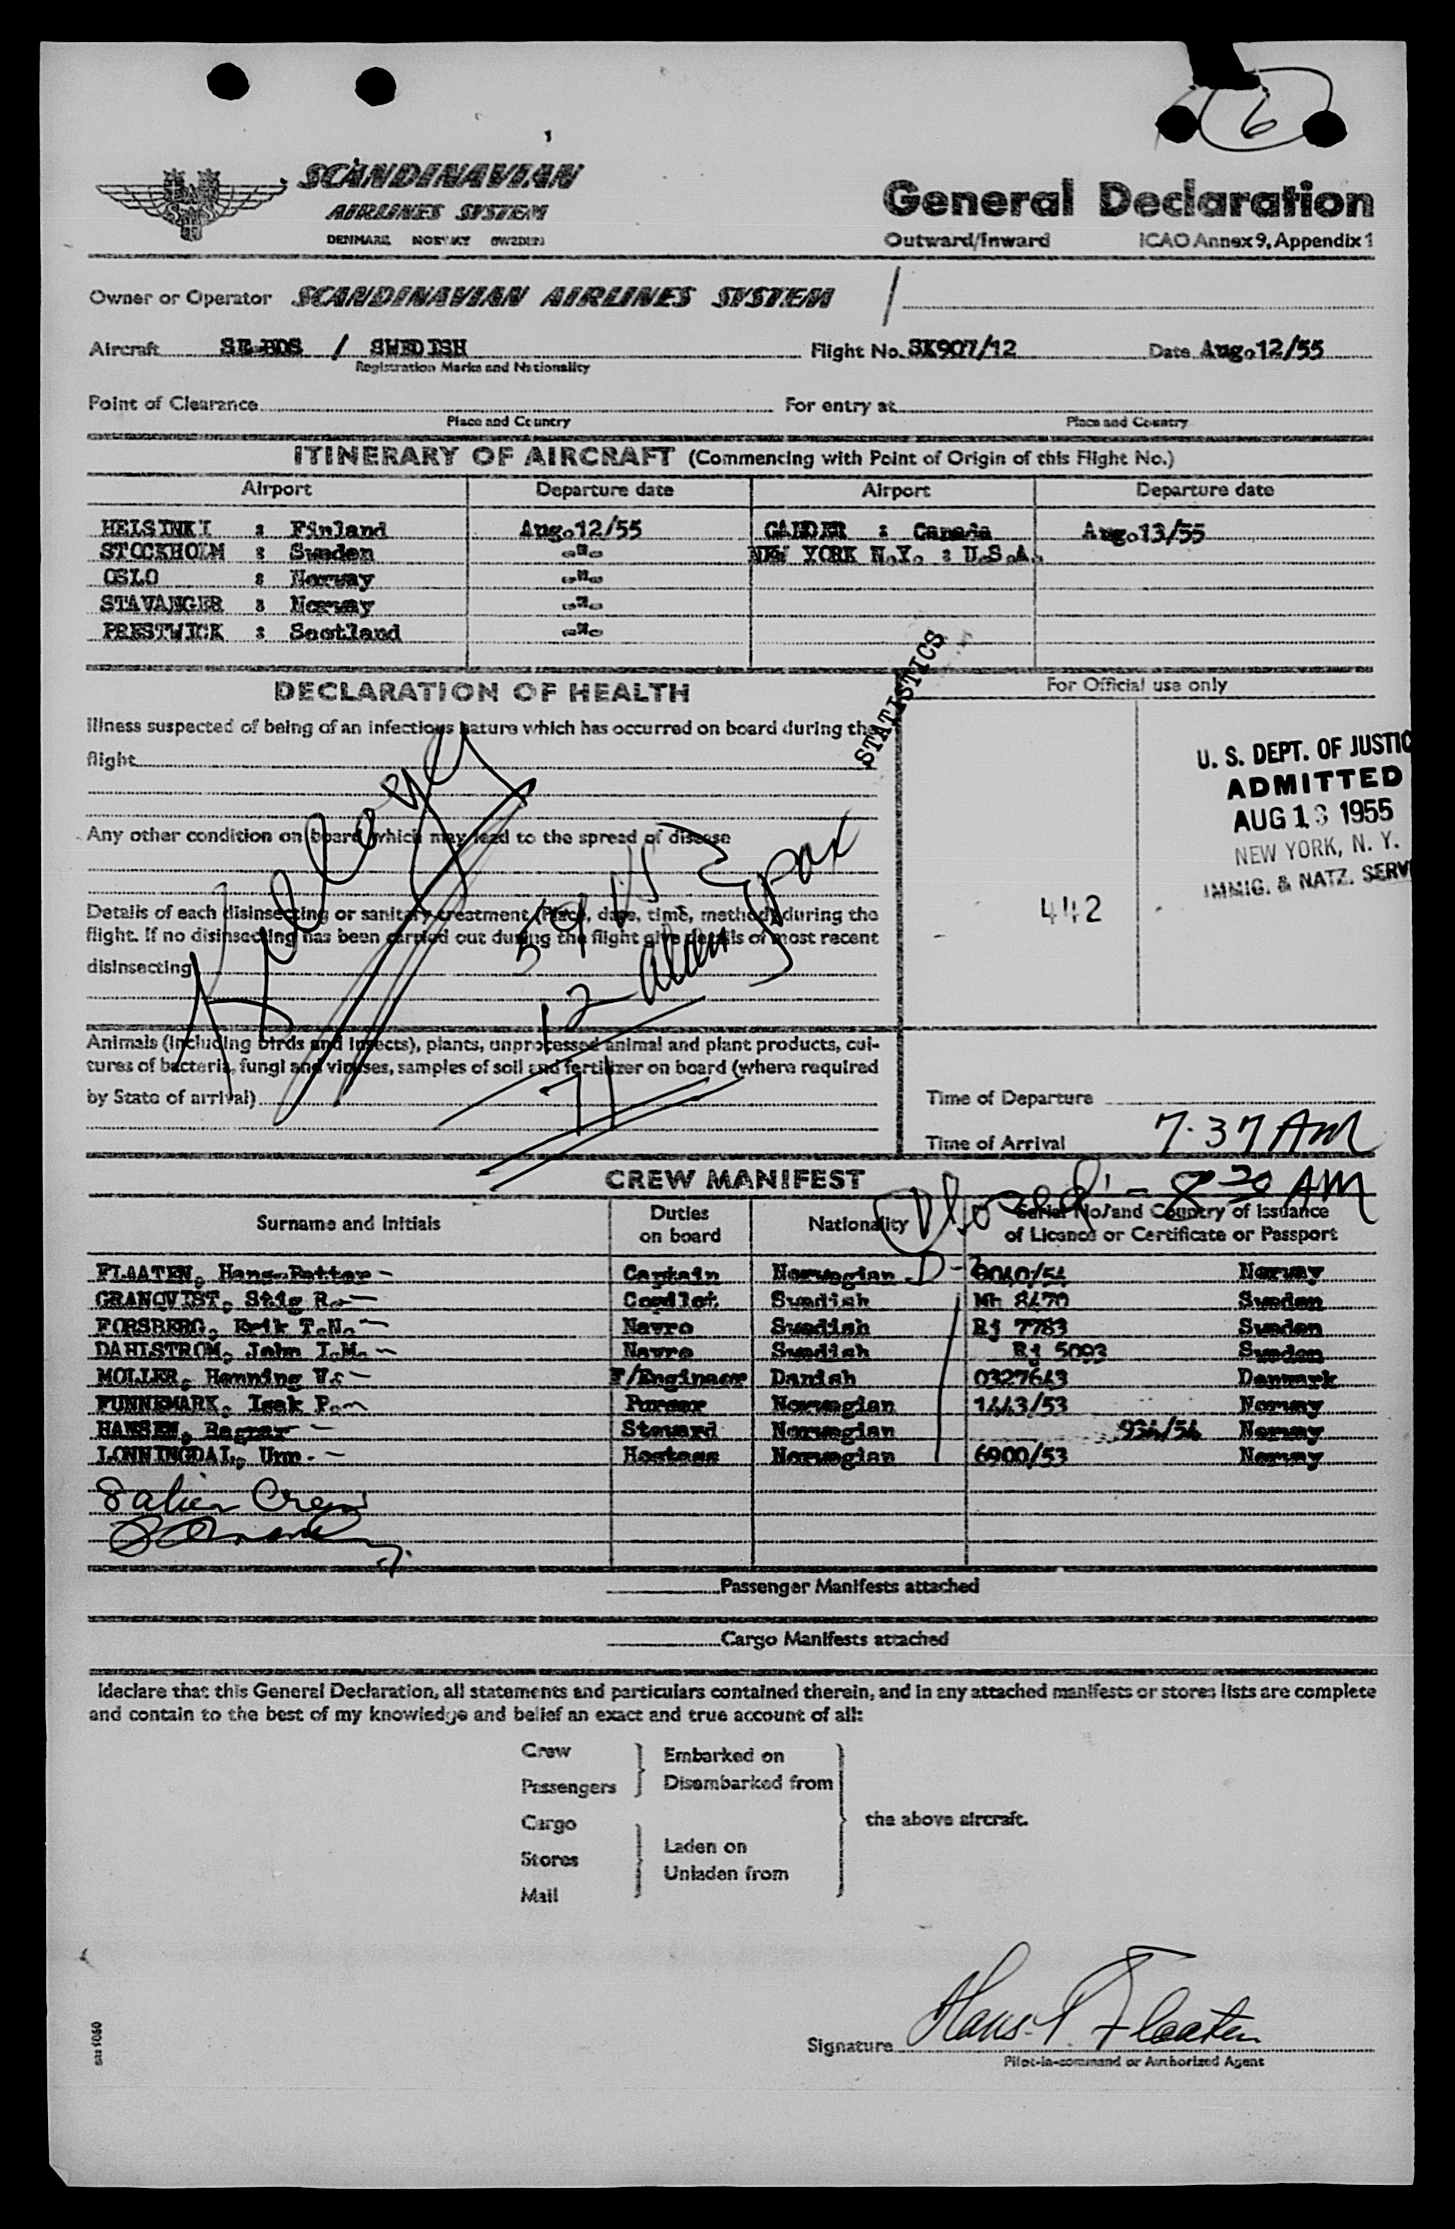 6
SCANDINAVIAN
AIRLINES SYSTEM
DENMARK NORWAY SWEDEN
General Declaration
Outward/Inward ICAO Annex 9, Appendix 1
Owner or Operator SCANDINAVIAN AIRLINES SYSTEM /
Aircraft SE-BDS / SWEDISH Flight No. SK907/12 Date Aug.12/55
Registration Marks and Nationality
Point of Clearance For entry at
Place and Country Place and Country
ITINERARY OF AIRCRAFT (Commencing with Point of Origin of this Flight No.)
Airport Departure date Airport Departure date
HELSINKI : Finland Aug.12/55 GANDER : Canada Aug.13/55
STOCKHOLM : Sweden -"- NEW YORK N.Y. : U.S.A.
OSLO : Norway -"-
STAVANGER : Norway -"-
PRESTWICK : Scotland -"-
STATISTICS
DECLARATION OF HEALTH For Official use only
Illness suspected of being of an infectious nature which has occurred on board during the
flight
U. S. DEPT. OF JUSTIC
ADMITTED
AUG 13 1955
NEW YORK, N. Y.
IMMIG. & NATZ. SERV
Any other condition on board which may lead to the spread of disease
442
Details of each disinsecting or sanitary treatment (Place, date, time, method) during the
flight. If no disinsecting has been carried out during the flight give details of most recent
disinsecting
59
12 alien
71
pax
Animals (including birds and insects), plants, unprocessed animal and plant products, cul-
tures of bacteria, fungi and viruses, samples of soil and fertilizer on board (where required
by State of arrival)
Time of Departure
Time of Arrival 7.37 AM
8 30 AM
CREW MANIFEST
Surname and Initials Duties on board Nationality Serial No. and Country of Issuance
of Licence or Certificate or Passport
FLAATEN, Hans-Petter - Captain Norwegian 8040/54 Norway
GRANQVIST, Stig R. - Copilot Swedish Mh 8470 Sweden
FORSBERG, Erik T.N. - Navro Swedish Rj 7783 Sweden
DAHLSTROM, John I.M. - Navro Swedish Rj 5093 Sweden
MOLLER, Henning V. - F/Engineer Danish 0327643 Denmark
FUNNEMARK, Isak P. - Purser Norwegian 1443/53 Norway
HANSEN, Ragnar - Steward Norwegian 934/54 Norway
LONNINGDAL, Unn. - Hostess Norwegian 6900/53 Norway
8 alien Crew
Passenger Manifests attached
Cargo Manifests attached
I declare that this General Declaration, all statements and particulars contained therein, and in any attached manifests or stores lists are complete
and contain to the best of my knowledge and belief an exact and true account of all:
Crew Embarked on
Passengers Disembarked from
Cargo the above aircraft.
Stores Laden on
Unladen from
Mail
Signature Hans-P. Flaaten
Pilot-in-command or Authorized Agent
sas 1050